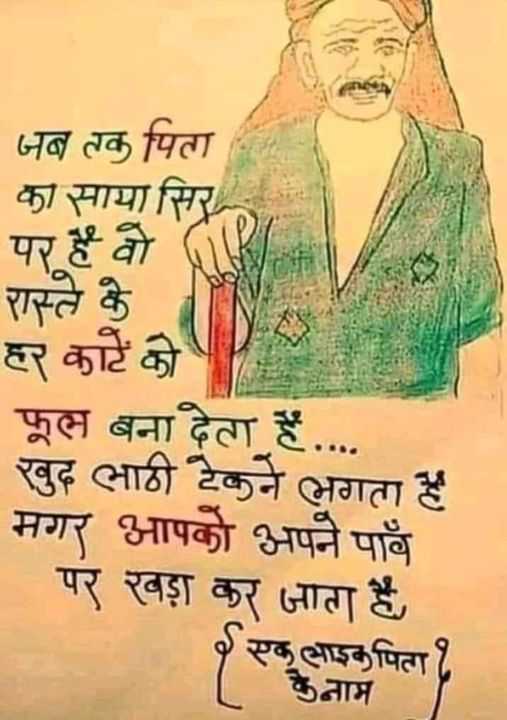 जब तक पिता
का साया सिर
पर है वो
रास्ते के
हर काटें को
फूल बना देता है....
खुद लाठी टेकने लगता है
मगर आपको अपने पाँव
पर खड़ा कर जाता है,
{ एक लाइक पिता }
के नाम